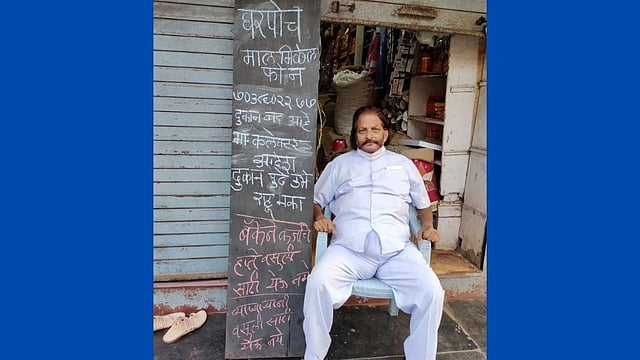 घरपोच
माल मिळेल
फोन
७०३८०२२७७
दुकान बंद आहे
मा. कलेक्टर
आदेश
दुकान पुढे उभे
राहू नका
बँकेने कर्जाचे
हप्ते वसुली
साठी येऊ नये
व्यापाऱ्यांनी
वसुली साठी
येऊ नये